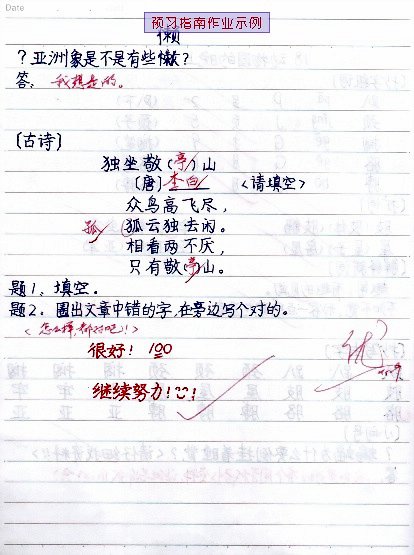 Date
预习指南作业示例
懒
？亚洲象是不是有些懒？
答：我想是的。
〔古诗〕
独坐敬(亭)山
〔唐〕李白 〈请填空〉
众鸟高飞尽，
孤 狐云独去闲。
相看两不厌，
只有敬(亭)山。
题1、填空。
题2、圈出文章中错的字，在旁边写个对的。
〈怎么样，都对吧！〉
很好！100
优
继续努力！